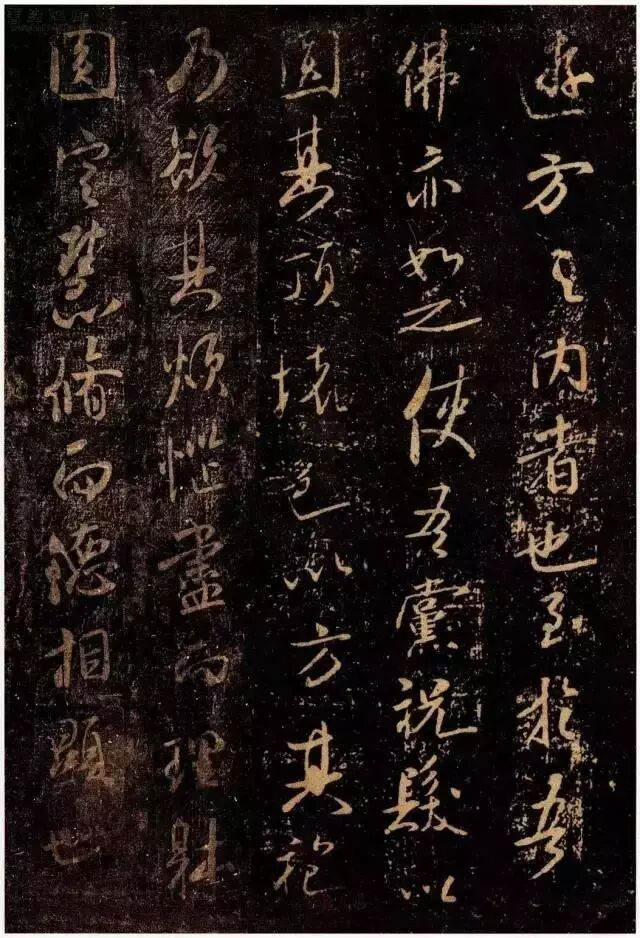 遊方之內者也至於吾
佛亦如之使吾黨祝髮以
圓其頂壞色以方其袍
乃欲其煩惱盡而理體
圓定慧脩而德相顯也